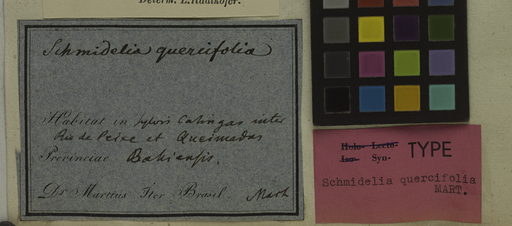 Determ. L. Radlkofer.
Schmidelia quercifolia
Habitat in sylvis Catingas inter
Rio de Peixe et Queimadas
Provinciae Bahiensis.
Dr. Martius Iter Brasil. Mart
Holo- Lecto- TYPE
Iso- Syn-
Schmidelia quercifolia
MART.